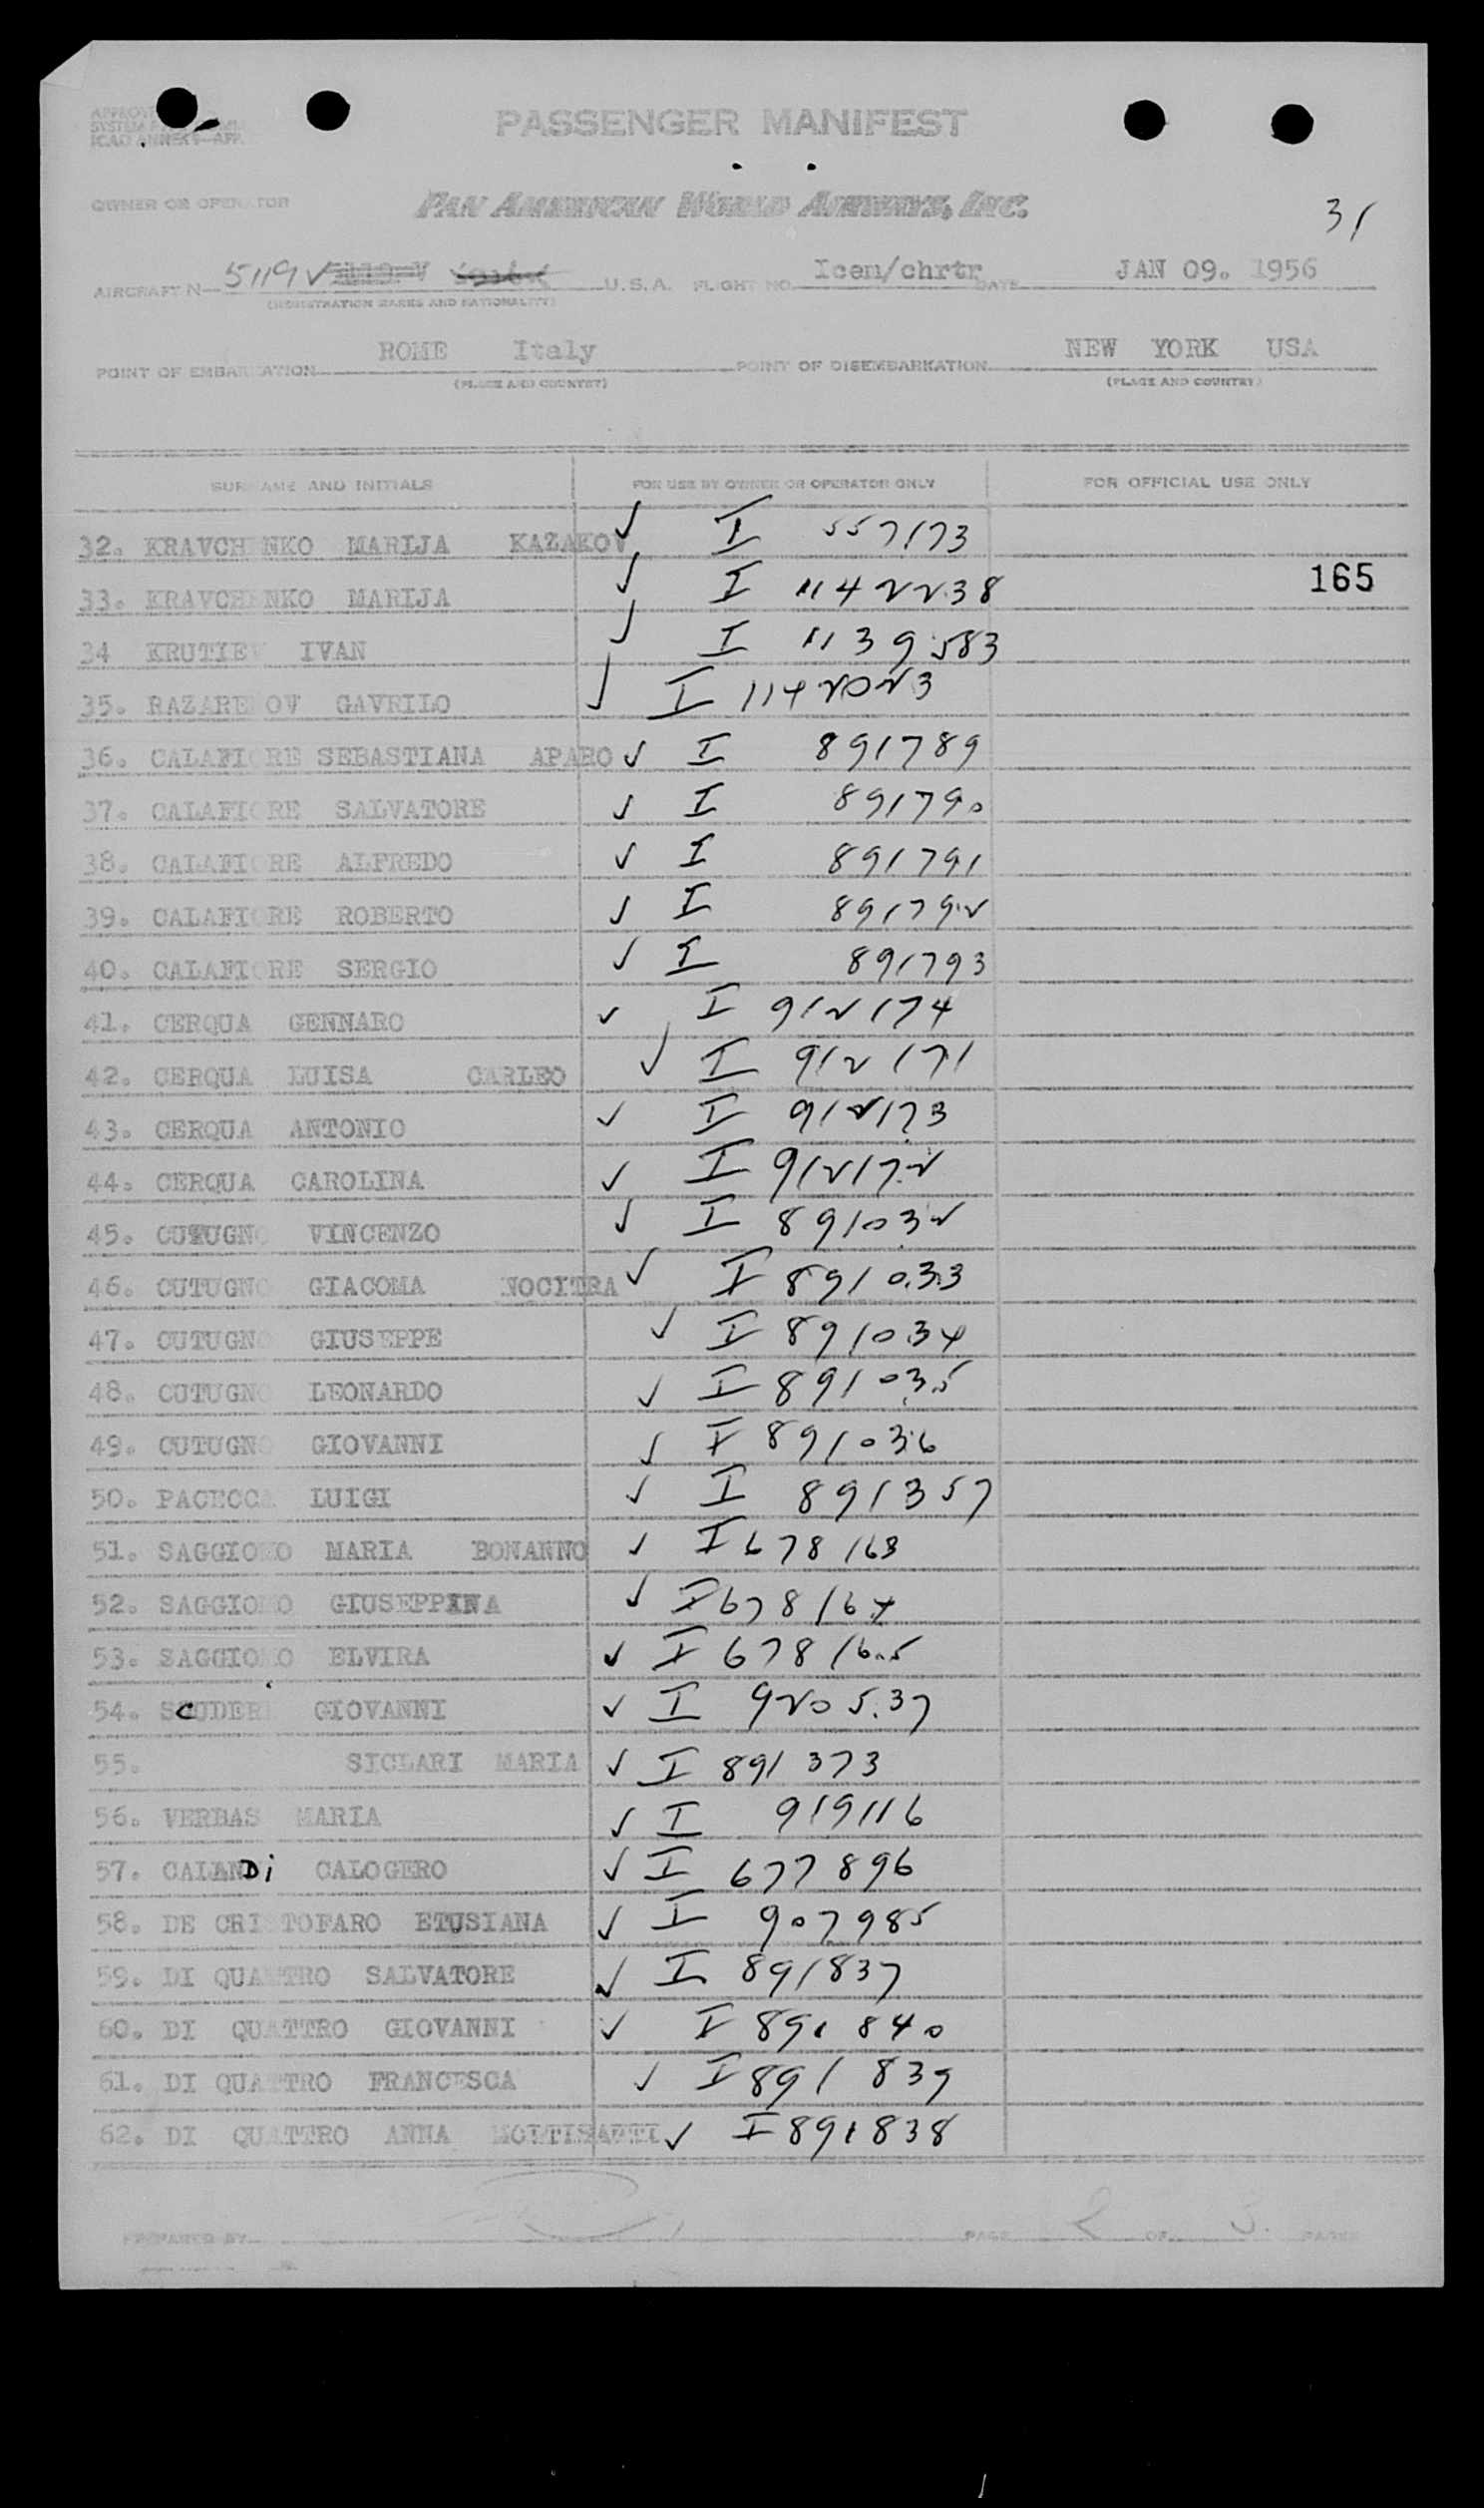 PASSENGER MANIFEST
ICAO ANNEX 9—APP.
OWNER OR OPERATOR PAN AMERICAN WORLD AIRWAYS, INC.
31
AIRCRAFT N 5119V U.S.A. FLIGHT NO. Icem/chrtr DATE JAN 09. 1956
(REGISTRATION MARKS AND NATIONALITY)
POINT OF EMBARKATION ROME Italy POINT OF DISEMBARKATION NEW YORK USA
(PLACE AND COUNTRY) (PLACE AND COUNTRY)
SURNAME AND INITIALS FOR USE BY OWNER OR OPERATOR ONLY FOR OFFICIAL USE ONLY
32. KRAVCHENKO MARIJA KAZAKOV ✓ I 557173
33. KRAVCHENKO MARIJA ✓ I 1142238 165
34 KRUTIEV IVAN ✓ I 1139583
35. RAZARENOV GAVRILO ✓ I 1142023
36. CALAFIORE SEBASTIANA APARO ✓ I 891789
37. CALAFIORE SALVATORE ✓ I 891790
38. CALAFIORE ALFREDO ✓ I 891791
39. CALAFIORE ROBERTO ✓ I 891792
40. CALAFIORE SERGIO ✓ I 891793
41. CERQUA GENNARO ✓ I 912174
42. CERQUA LUISA CARLEO ✓ I 912171
43. CERQUA ANTONIO ✓ I 912173
44. CERQUA CAROLINA ✓ I 912172
45. CUTUGNO VINCENZO ✓ I 891032
46. CUTUGNO GIACOMA NOCITRA ✓ I 891033
47. CUTUGNO GIUSEPPE ✓ I 891034
48. CUTUGNO LEONARDO ✓ I 891035
49. CUTUGNO GIOVANNI ✓ I 891036
50. PACECCA LUIGI ✓ I 891357
51. SAGGIOMO MARIA BONANNO ✓ I 678163
52. SAGGIOMO GIUSEPPINA ✓ I 678164
53. SAGGIOMO ELVIRA ✓ I 678165
54. SCUDERI GIOVANNI ✓ I 920537
55. SICLARI MARIA ✓ I 891373
56. VERBAS MARIA ✓ I 919116
57. CALANDi CALOGERO ✓ I 677896
58. DE CRISTOFARO ETUSIANA ✓ I 907985
59. DI QUATTRO SALVATORE ✓ I 891837
60. DI QUATTRO GIOVANNI ✓ I 891840
61. DI QUATTRO FRANCESCA ✓ I 891839
62. DI QUATTRO ANNA MOLTISANTI ✓ I 891838
PREPARED BY PAGE 2 OF 3. PAGES